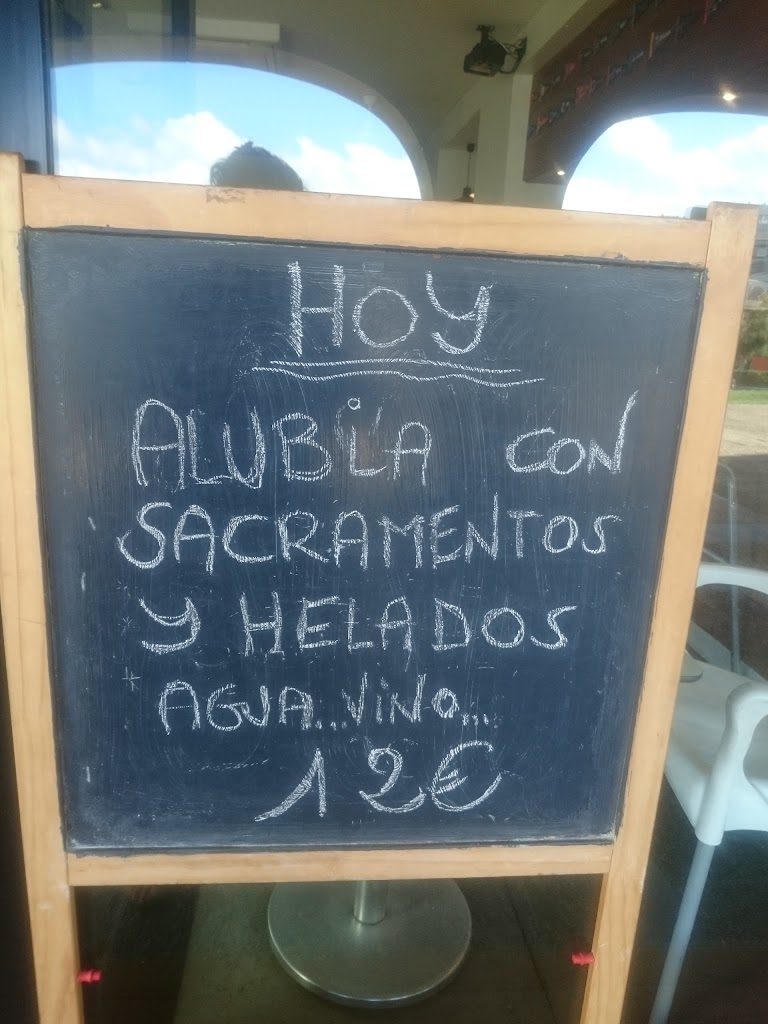 HOY
ALUBiA CON
SACRAMENTOS
Y HELADOS
AGUA...ViNo...
12€